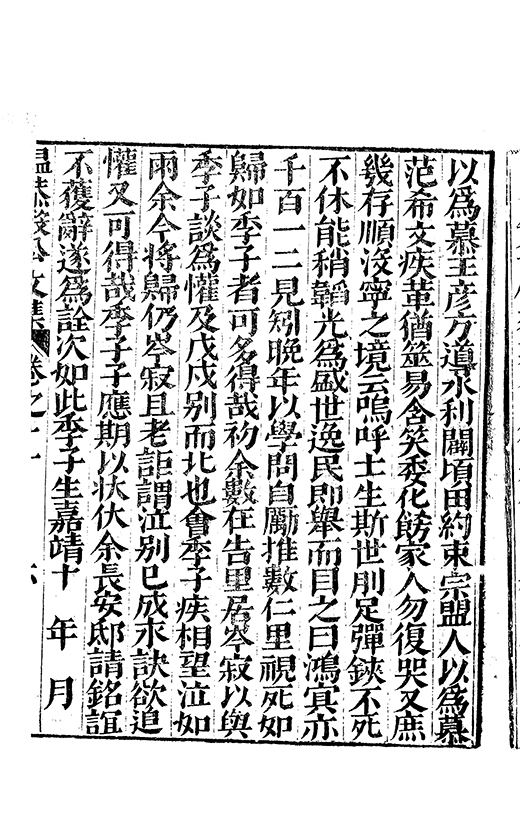 以爲慕王彥方導水利闢頃田約束宗盟人以爲慕
范希文疾革猶筮易含笑委化飭家人勿復哭又庶
幾存順沒寧之境云嗚呼士生斯世刖足彈鋏不死
不休能稍韜光爲盛世逸民即舉而目之曰鴻冥亦
千百一二見矧晚年以學問自勵推數仁里視死如
歸如季子者可多得哉初余數在告里居岑寂以與
季子談爲懽及戊戌別而北也會季子疾相望泣如
雨余今將歸仍岑寂且老詎謂泣別已成永訣欲追
懽又可得哉季子子應期以狀伏余長安邸請銘誼
不獲辭遂爲詮次如此季子生嘉靖十 年 月
溫恭毅公文集 卷之十一